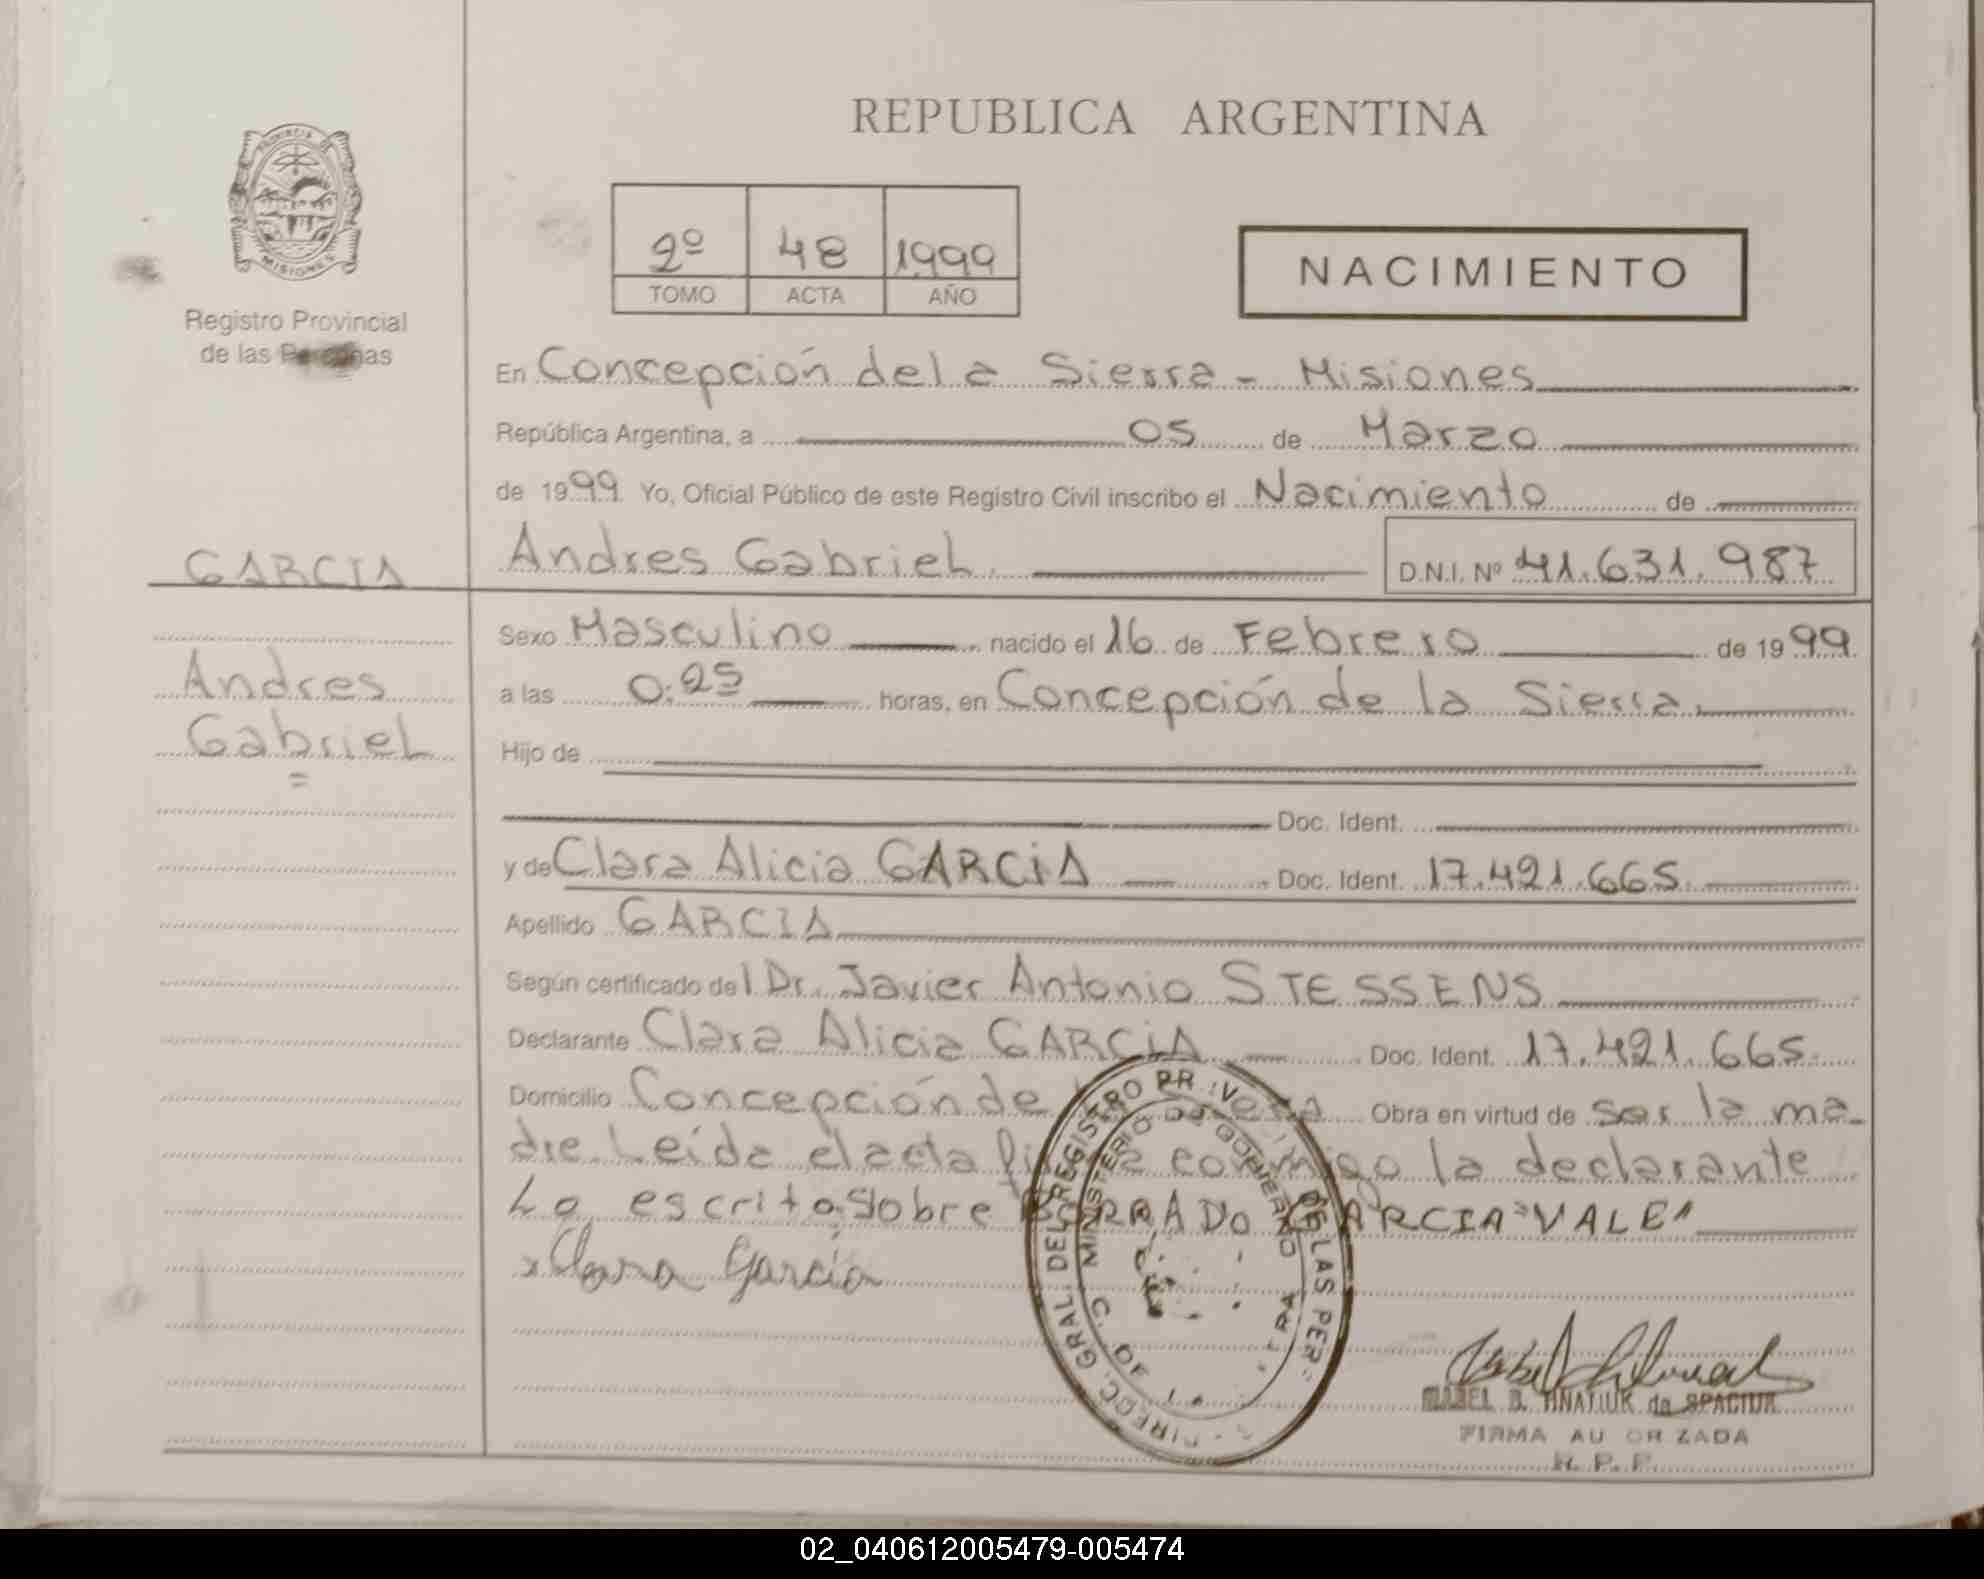 REPUBLICA ARGENTINA
PROVINCIA DE
MISIONES
Registro Provincial
de las Personas
2º 48 1999
TOMO ACTA AÑO
NACIMIENTO
En Concepción de la Sierra - Misiones
República Argentina, a 05 de Marzo
de 1999 Yo, Oficial Público de este Registro Civil inscribo el Nacimiento de
GARCIA
Andres Gabriel
D.N.I. Nº 41.631.987
Sexo Masculino nacido el 16 de Febrero de 1999
Andres
Gabriel
a las 0:25 horas, en Concepción de la Sierra
Hijo de
Doc. Ident.
y de Clara Alicia GARCIA Doc. Ident. 17.421.665
Apellido GARCIA
Según certificado del Dr. Javier Antonio STESSENS
Declarante Clara Alicia GARCIA Doc. Ident. 17.421.665
Domicilio Concepción de Obra en virtud de ser la ma-
dre. Leída el acta conmigo la declarante
Lo escrito Sobre BORRADO GARCIA "VALE"
x Clara Garcia
DIRECC. GRAL. DEL REGISTRO DE LAS PER
MINISTERIO DE GOBIERNO
ISABEL B. HNATIUK de SPACIUK
FIRMA AUTORIZADA
R. P. P.
02_040612005479-005474